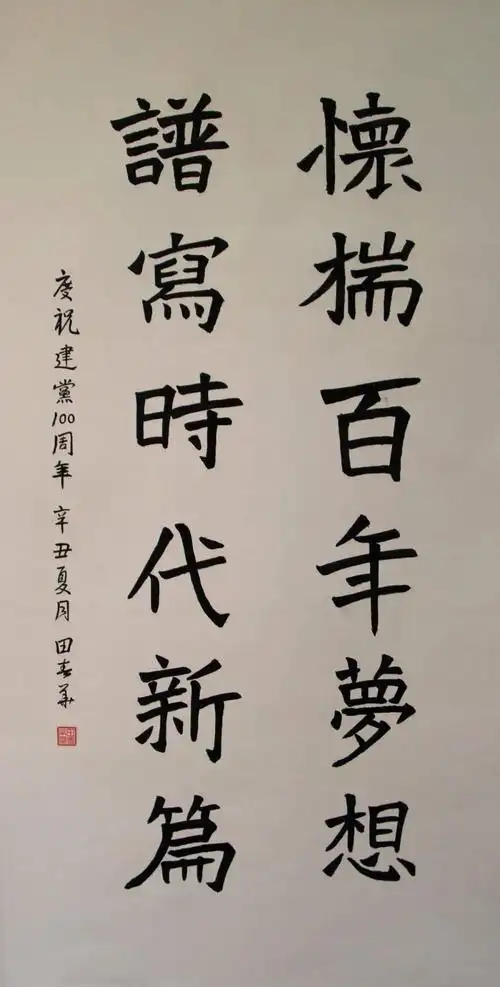 懷揣百年夢想
譜寫時代新篇
慶祝建黨100周年 辛丑夏月 田春華